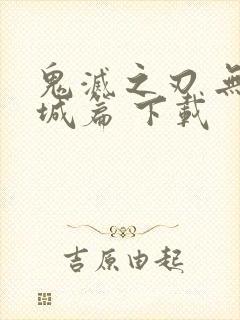 鬼滅之刃 無
城篇 下載
吉原由起